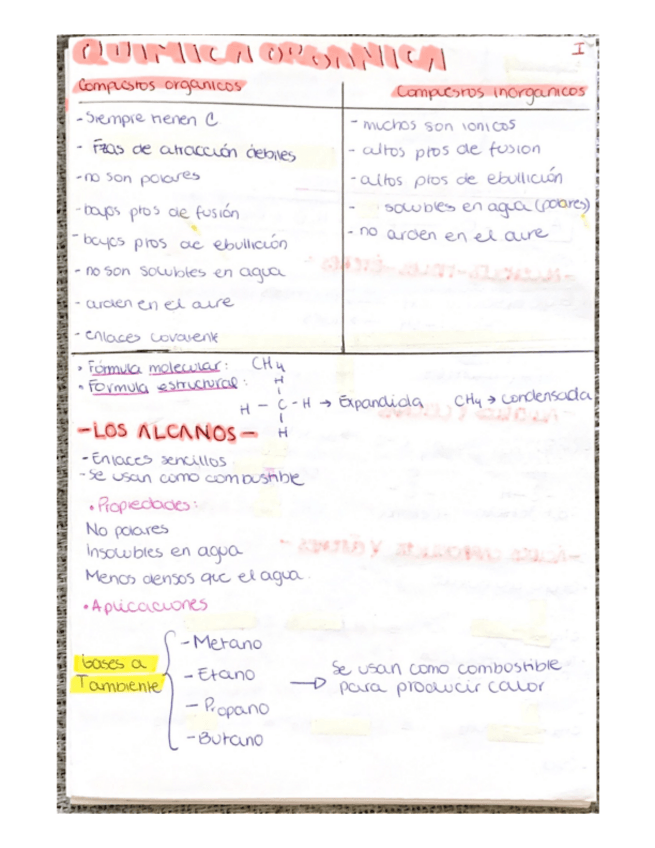 QUIMICA ORGANICA
I
Compuestos organicos
- Siempre tienen C
- Fzas de atracción debiles
- no son polares
- bajos ptos de fusión
- bajos ptos de ebullición
- no son solubles en agua
- arden en el aire
- enlaces covalente
Compuestos inorganicos
- muchos son ionicos
- altos ptos de fusion
- altos ptos de ebullición
- solubles en agua (polares)
- no arden en el aire
• Fórmula molecular: CH4
• Formula estructural:
H
H - C - H → Expandida CH4 → condensada
H
- LOS ALCANOS -
- Enlaces sencillos
- Se usan como combustible
• Propiedades:
No polares
Insolubles en agua
Menos densos que el agua.
• Aplicaciones
Gases a
Tambiente
- Metano
- Etano
- Propano
- Butano
→ Se usan como combustible
para producir calor